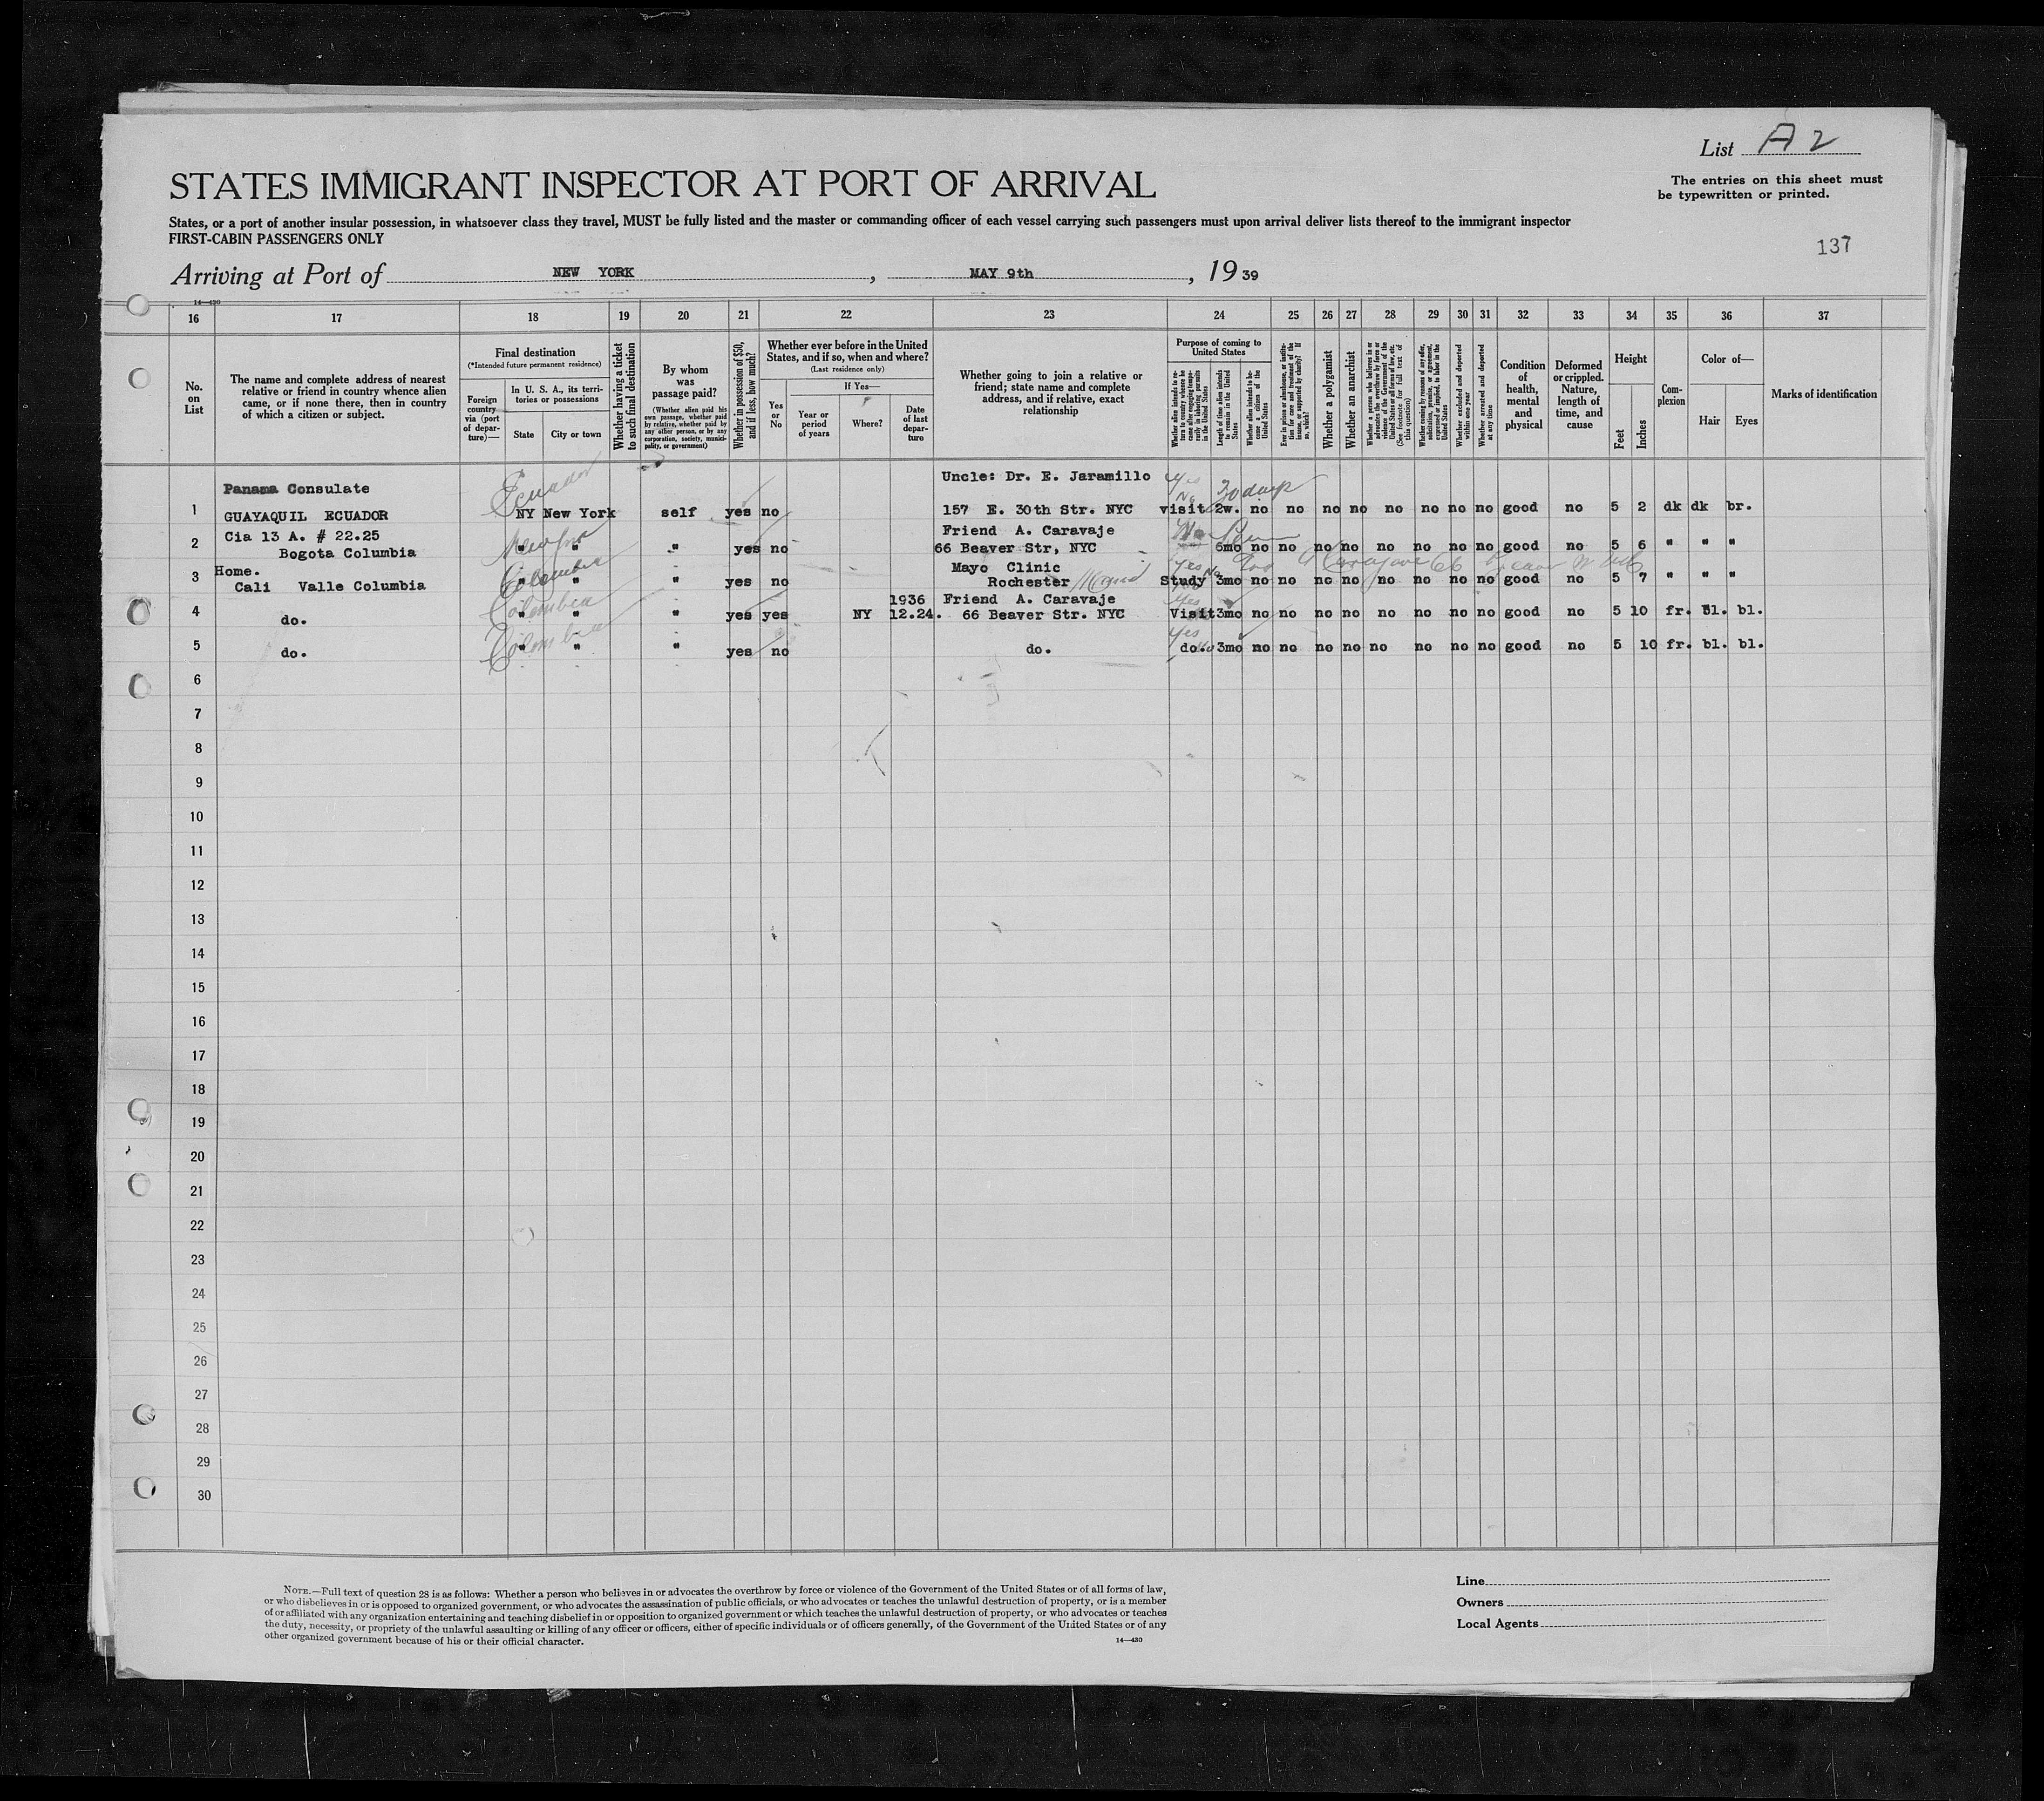 List A2
STATES IMMIGRANT INSPECTOR AT PORT OF ARRIVAL
The entries on this sheet must
be typewritten or printed.
States, or a port of another insular possession, in whatsoever class they travel, MUST be fully listed and the master or commanding officer of each vessel carrying such passengers must upon arrival deliver lists thereof to the immigrant inspector
FIRST-CABIN PASSENGERS ONLY
137
Arriving at Port of NEW YORK, MAY 9th, 1939
14—430
16 17 18 19 20 21 22 23 24 25 26 27 28 29 30 31 32 33 34 35 36 37
No. on List
The name and complete address of nearest relative or friend in country whence alien came, or if none there, then in country of which a citizen or subject.
Final destination
(*Intended future permanent residence)
Foreign country via (port of departure)—
In U. S. A., its territories or possessions
State
City or town
Whether having a ticket to such final destination
By whom was passage paid?
(Whether alien paid his own passage, whether paid by relative, whether paid by any other person, or by any corporation, society, municipality, or government)
Whether in possession of $50, and if less, how much?
Whether ever before in the United States, and if so, when and where?
(Last residence only)
Yes or No
If Yes—
Year or period of years
Where?
Date of last departure
Whether going to join a relative or friend; state name and complete address, and if relative, exact relationship
Purpose of coming to United States
Whether alien intends to return to country whence he came after engaging temporarily in laboring pursuits in the United States
Length of time alien intends to remain in the United States
Whether alien intends to become a citizen of the United States
Ever in prison or almshouse, or institution for care and treatment of the insane, or supported by charity? If so, which?
Whether a polygamist
Whether an anarchist
Whether a person who believes in or advocates the overthrow by force or violence of the Government of the United States or all forms of law, etc. (See footnote for full text of this question)
Whether coming by reasons of any offer, solicitation, promise, or agreement, expressed or implied, to labor in the United States
Whether excluded and deported within one year
Whether arrested and deported at any time
Condition of health, mental and physical
Deformed or crippled. Nature, length of time, and cause
Height
Feet
Inches
Complexion
Color of—
Hair
Eyes
Marks of identification
Panama Consulate Ecuador Uncle: Dr. E. Jaramillo yes No 30 days
1 GUAYAQUIL ECUADOR NY New York self yes no 157 E. 30th Str. NYC visit 2w. no no no no no no no no good no 5 2 dk dk br.
Cia 13 A. # 22.25 Friend A. Caravaje No
2 Bogota Columbia " " " yes no 66 Beaver Str, NYC 6mo no no no no no no no no good no 5 6 " " "
Home. Colombia Mayo Clinic yes No
3 Cali Valle Columbia " " " yes no Rochester Study 3mo no no no no no no no no good no 5 7 " " "
Colombia 1936 Friend A. Caravaje yes
4 do. " " " yes yes NY 12.24. 66 Beaver Str. NYC Visit 3mo no no no no no no no no good no 5 10 fr. bl. bl.
Colombia yes
5 do. " " " yes no do. do. 3mo no no no no no no no no good no 5 10 fr. bl. bl.
6
7
8
9
10
11
12
13
14
15
16
17
18
19
20
21
22
23
24
25
26
27
28
29
30
NOTE.—Full text of question 28 is as follows: Whether a person who believes in or advocates the overthrow by force or violence of the Government of the United States or of all forms of law,
or who disbelieves in or is opposed to organized government, or who advocates the assassination of public officials, or who advocates or teaches the unlawful destruction of property, or is a member
of or affiliated with any organization entertaining and teaching disbelief in or opposition to organized government or which teaches the unlawful destruction of property, or who advocates or teaches
the duty, necessity, or propriety of the unlawful assaulting or killing of any officer or officers, either of specific individuals or of officers generally, of the Government of the United States or of any
other organized government because of his or their official character.
14—430
Line
Owners
Local Agents